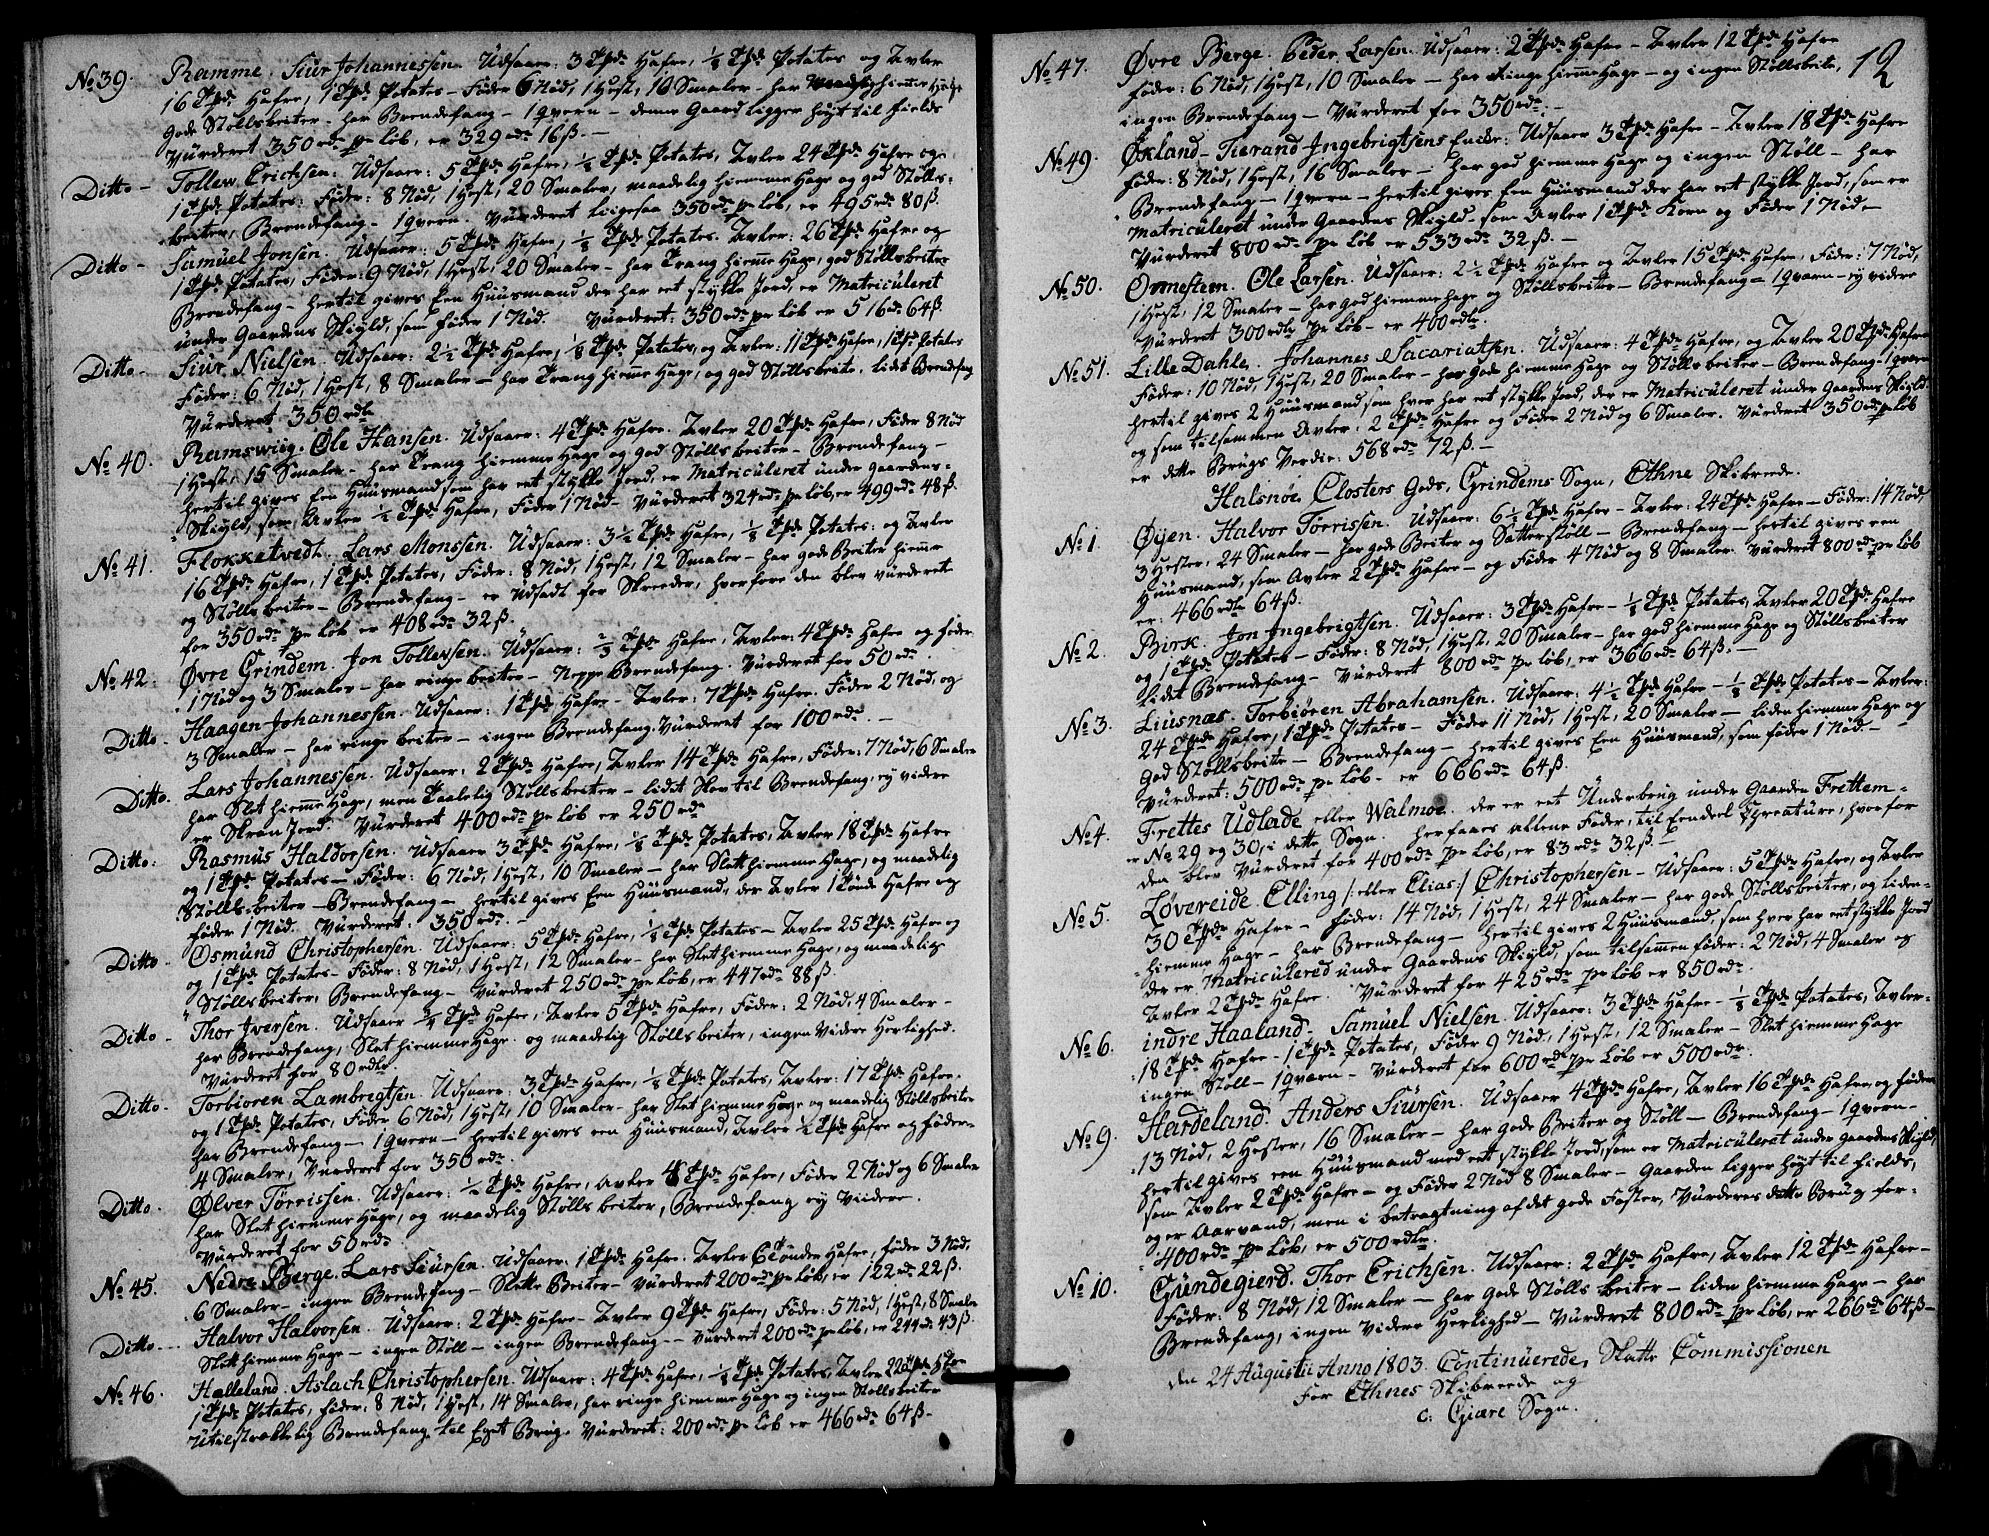 No 39. Ramme. Siur Johannessen. Udsaaer: 3 Tpd: Hafre, 1/8 Tpd: Potates og Avler
16 Tpd: Hafre, 1 Tpd: Potates – Føder 6 Nød, 1 Hest, 10 Smaler – har maadelig hiemme Hage
gode Stølls beiter – har Brendefang – 1 qvern – denne Gaard ligger høyt til Fields
Vurderet 350 rdr pr Løb, er 329 rdr 16 ß. –
Ditto – Tollew Erichsen. Udsaaer: 5 Tpd: Hafre, 1/4 Tpd: Potates, Avler 24 Tpd: Hafre og
1 Tpd: Potates. Føder: 8 Nød, 1 Hest, 20 Smaler, maadelig hiemme Hage og god Stølls-
beiter, Brendefang – 1 qvern. Vurderet ligesaa 350 rdr pr Løb, er 495 rdr 80 ß.
Ditto – Samuel Jonsen. Udsaaer: 5 Tpd: Hafre, 1/8 Tpd: Potates. Avler: 26 Tpd: Hafre og
1 Tpd: Potates, Føder: 9 Nød, 1 Hest, 20 Smaler – har Trang hiemme Hage, god Støllsbeiter
Brendefang – hertil gives Een Huusmand der har eet stykke Jord, er Matriculeret
under Gaardens Skyld, som føder 1 Nød. Vurderet: 350 rdr pr Løb er 516 rdr 64 ß.
Ditto – Siur Nielsen. Udsaaer: 2 1/2 Tpd: Hafre, 1/8 Tpd: Potates, og Avler: 11 Tpd: Hafre, 1 Tpd: Potates
Føder: 6 Nød, 1 Hest, 8 Smaler – har Trang hiemme Hage, og god Støllsbeite. lidet Brendefang
Vurderet 350 rdlr
No 40. Ramswiig. Ole Hansen. Udsaaer: 4 Tpd: Hafre. Avler 20 Tpd: Hafre, Føder 8 Nød
1 Hest, 15 Smaler – har Trang hiemme Hage og god Stølls beiter – Brendefang –
hertil gives Een Huusmand som har eet stykke Jord, er Matriculeret under Gaardens
Skyld, som Avler 1/2 Tpd: Hafre, Føder 1 Nød – Vurderet 324 rdr pr Løb, er 499 rdr 48 ß.
No 41. Flokketvedt. Lars Monssen. Udsaaer: 3 1/2 Tpd: Hafre, 1/8 Tpd: Potates: og Avler
16 Tpd: Hafre, 1 Tpd: Potates, Føder: 8 Nød, 1 Hest, 12 Smaler – har gode Beiter hiemme
og Støllsbeiter – Brendefang – er Udsadt for Skreeder, hvorfore den blev vurderet
for 350 rdr pr Løb er 408 rdr 32 ß.
No 42. Øvre Grindem. Jon Tollevsen. Udsaaer: 2/3 Tpd: Hafre, Avler: 4 Tpd: Hafre og føder
1 Nød og 3 Smaler – har ringe beiter – Neppe Brendefang. Vurderet for 50 rdr.
Ditto. Haagen Johannessen. Udsaaer: 1 Tpd: Hafre – Avler: 7 Tpd: Hafre. Føder 2 Nød, og
3 Smaler – har ringe beiter – ingen Brendefang. Vurderet for 100 rdr. –
Ditto. Lars Johannessen. Udsaaer: 2 Tpd: Hafre, Avler 14 Tpd: Hafre, Føder: 7 Nød, 6 Smaler
har Slet hiemme Hage, men Taalelig Støllsbeiter – lidet Skov til Brendefang, ey videre
er Skran Jord. Vurderet 400 rdr pr Løb er 250 rdr
Ditto: Rasmus Haldorsen. Udsaaer 3 Tpd: Hafre, 1/8 Tpd: Potates, Avler 18 Tpd: Hafre
og 1 Tpd: Potates – Føder: 6 Nød, 1 Hest, 10 Smaler – har Slett hiemme Hage, og maadelig
Støllsbeiter – Brendefang – hertil gives Een Huusmand, der Avler 1 Tønde Hafre og
føder 1 Nød. Vurderet: 350 rdr. –
Ditto – Osmund Christophersen. Udsaaer: 5 Tpd: Hafre, 1/8 Tpd: Potates – Avler 25 Tpd: Hafre og
og 1 Tpd: Potates – Føder: 8 Nød, 1 Hest, 12 Smaler – har Slet hiemme Hage, og maadelig
Støllsbeiter, Brendefang – Vurderet 250 rdr pr Løb, er 447 rdr 88 ß.
Ditto – Thor Iversen. Udsaaer 3/4 Tpd: Hafre, Avler 5 Tpd: Hafre, Føder: 2 Nød, 4 Smaler –
har Brendefang, Slet hiemme Hage. og maadelig Støllsbeiter, ingen Videre Herlighed.
Vurderet for 80 rdlr.
Ditto – Torbiøren Lambregtsen. Udsaaer: 3 Tpd: Hafre, 1/8 Tpd: Potates, Avler: 17 Tpd: Hafre.
og 1 Tpd: Potates, Føder 6 Nød, 1 Hest, 10 Smaler – har Slet hiemme Hage og maadelig Støllsbeiter
har Brendefang – 1 qvern – hertil gives een Huusmand, Avler 1/2 Tpd: Hafre og føder
4 Smaler, Vurderet for 350 rdr.
Ditto. Ølver Tørrissen. Udsaaer: 1/2 Tpd: Hafre, Avler 4 Tpd: Hafre, Føder 2 Nød og 6 Smaler
har Slet hiemme Hage, og maadelig Støllsbeiter, Brendefang ey Viidere.
Vurderet for 50 rdr
No 45. Nedre Berge. Lars Siursen. Udsaaer: 1 Tpd: Hafre. Avler 6 Tønder Hafre, føder 3 Nød,
6 Smaler – ingen Brendefang – Slette Beiter – Vurderet 200 rdr pr Løb, er 122 rdr 22 ß.
Ditto – Halvor Halvorsen. Udsaaer: 2 Tpd: Hafre – Avler 9 Tpd: Hafre, Føder: 5 Nød, 1 Hest, 8 Smaler
Slett hiemme Hage – ingen Støll – ingen Brendefang – Vurderet 200 rdr pr Løb, er 244 rdr 43 ß.
No 46. Halleland. Aslach Christophersen. Udsaaer: 4 Tpd: Hafre, 1/8 Tpd: Potates, Avler 22 Tpd: Hafre
1 Tpd: Potates, føder: 8 Nød, 1 Hest, 14 Smaler, har ringe hiemme Hage og ingen Støllsbeiter
Utilstrækkelig Brendefang til Eget Brug. Vurderet: 200 rdr pr Løb er 466 rdr 64 ß –
12
No 47. Øvre Berge. Peder Larsen. Udsaaer: 2 Tpd: Hafre – Avler 12 Tpd: Hafre
føder: 6 Nød, 1 Hest, 10 Smaler – har Ringe hiemme Hage – og ingen Støllsbeite,
ingen Brendefang – Vurderet for 350 rdr. –
No 49. Økland – Tierand Ingebrigtsens Encke: Udsaaer 3 Tpd: Hafre – Avler 18 Tpd: Hafre
føder: 8 Nød, 1 Hest, 16 Smaler – har god hiemme Hage og ingen Støll – har
Brendefang – 1 qvern – hertil gives Een Huusmand der har eet stykke Jord, som er
Matriculeret under Gaardens Skyld – som Avler 1 Tpd: Korn og Føder 1 Nød –
Vurderet 800 rdr pr Løb er 533 rdr 32 ß. –
No 50. Ønnestren. Ole Larsen. Udsaaer: 2 1/2 Tpd: Hafre og Avler 15 Tpd: Hafre, Føder: 7 Nød,
1 Hest, 12 Smaler – har god hiemme hage og Støllsbeiter – Brendefang – 1 qvern – ey videre
Vurderet 300 rdlr pr Løb – er 400 rdlr.
No 51. Lille Dahle. Johannes Sacariatsen. Udsaaer: 4 Tpd: Hafre, og Avler 20 Tpd: Hafre
Føder: 10 Nød, 1 Hest, 20 Smaler – har gode hiemme Hage og Støllsbeiter – Brendefang – 1 qvern
hertil gives 2 Huusmænd som hver har eet stykke Jord, der er Matriculeret under Gaardens Skyld
og som tilsammen Avler: 2 Tpd: Hafre og Føder 2 Nød og 6 Smaler. Vurderet 350 rdr pr Løb
er dette Brugs Verdie: 568 rdr 72 ß. –
Halsnøe Closters Gods, Grindems Sogn, Ethne Skibrede.
No 1 Øyen. Halvor Tørrissen. Udsaaer: 6 1/2 Tpd: Hafre – Avler: 24 Tpd: Hafre – Føder: 14 Nød,
3 Hester, 24 Smaler – har gode Beiter og Sætterstøll – Brendefang – hertil gives een
Huusmand, som Avler 2 Tpd: Hafre – og Føder 4 Nød og 8 Smaler. Vurderet 800 rdr pr Løb
er: 466 rdlr 64 ß.
No 2. Birk. Jon Ingebrigtsen. Udsaaer: 3 Tpd: Hafre – 1/8 Tpd: Potates, Avler 20 Tpd: Hafre
og 1 Tpd: Potates – Føder: 8 Nød, 1 Hest, 20 Smaler – har god hiemme Hage og Støllsbeiter
lidet Brendefang – Vurderet 800 rdr pr Løb, er 366 rdr 64 ß. –
No 3. Liusnæs. Torbiøren Abrahamsen. Udsaaer: 4 1/2 Tpd: Hafre – 1/8 Tpd: Potates – Avler:
24 Tpd: Hafre, 1 Tpd: Potates – Føder 11 Nød, 1 Hest, 20 Smaler – liden hiemme Hage og
god Støllsbeite – Brendefang – hertil gives Een Huusmand, som føder 1 Nød. –
Vurderet: 500 rdr pr Løb – er 666 rdr 64 ß.
No 4. Frettes Udlade eller Walmoe. der er eet Underbrug under Gaarden Frettem –
er No 29 og 30, i dette Sogn. her faaes allene Føder, til Eendeel Creature, hvorfor
den blev Vurderet for 400 rdr pr Løb, er 83 rdr 32 ß. –
No 5. Løvereide. Elling /: eller Elias :/ Christophersen – Udsaaer: 5 Tpd: Hafre, og Avler
30 Tpd: Hafre – føder: 14 Nød, 1 Hest, 24 Smaler – har gode Støllsbeiter, og liden
hiemme Hage – har Brendefang – hertil gives 2 Huusmænd, som hver har eet stykke Jord
der er Matriculered under Gaardens Skyld, som tilsammen føder: 2 Nød, 4 Smaler og
Avler 2 Tpd: Hafre. Vurderet for 425 rdr pr Løb er 850 rdr.
No 6. indre Haaland. Samuel Nielsen. Udsaaer: 3 Tpd: Hafre – 1/8 Tpd: Potates, Avler
18 Tpd: Hafre – 1 Tpd: Potates, Føder 9 Nød, 1 Hest, 12 Smaler – Slet hiemme Hage
ingen Støll – 1 qvern – Vurderet for 600 rdr pr Løb er 500 rdr.
No 9. Hardeland. Anders Siursen. Udsaaer 4 Tpd: Hafre, Avler 16 Tpd: Hafre, og føder
13 Nød, 2 Hester, 16 Smaler – har gode Beiter og Støll – Brendefang – 1 qvern –
hertil gives een Huusmand med eet stykke Jord, som er Matriculeret under Gaardens Skyld,
som Avler 2 Tpd: Hafre – og Føder 2 Nød 8 Smaler – Gaarden ligger høyt til Fields,
og er Aarvand, men i betragtning af det gode Foster, Vurderes dette Brug for
400 rdr pr Løb, er 500 rdlr.
No 10. Gundegierd. Thor Erichsen. Udsaaer: 2 Tpd: Hafre, Avler 12 Tpd: Hafre –
Føder: 8 Nød, 12 Smaler – har gode Stølls beiter – liden hiemme Hage – har
Brendefang, ingen Videre Herlighed – Vurderet 800 rdr pr Løb, er 266 rdr 64 ß –
den 24 Augustii Anno 1803. Continuerede, Skatte Commissionen
for Ethnes Skibreede og
c: Giære Sogn.